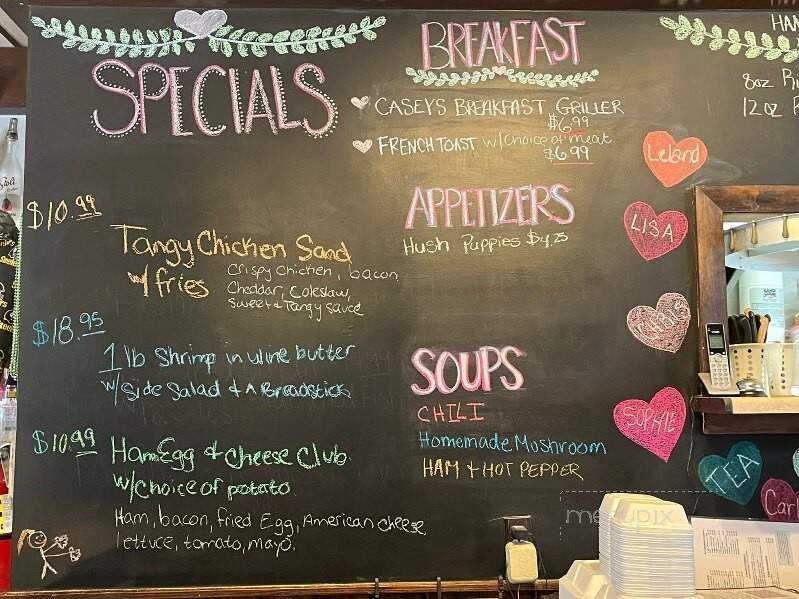 SPECIALS
$10.99
Tangy Chicken Sand
w/fries
Crispy Chicken, bacon,
Cheddar, Coleslaw,
Sweet & Tangy sauce
$18.95
1 lb Shrimp in wine butter
w/side Salad & A Breadstick
$10.99
Ham Egg & Cheese Club
w/choice of potato
Ham, bacon, fried Egg, American cheese,
lettuce, tomato, mayo.
BREAKFAST
CASEYS BREAKFAST GRILLER
$6.99
FRENCH TOAST w/choice of meat
$6.99
APPETIZERS
Hush Puppies $4.25
SOUPS
CHILI
Homemade Mushroom
HAM & HOT PEPPER
HAN
8oz Ri
12oz
Leland
LISA
SOPHIE
TEA
Carl
menupix